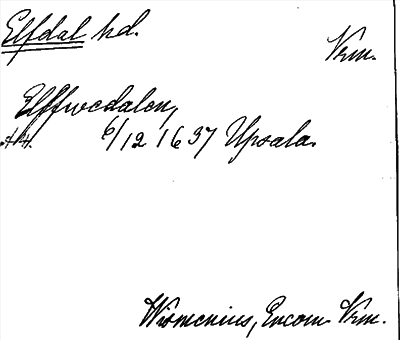 Elfdal hd.
Vrm.
Elffwedalen,
6/12 1637 Upsala.
Wismenius, Encom Vrm.